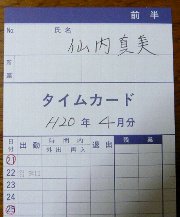 前半
No.
氏名 仙内真美
所属
タイムカード
H20年4月分
日付 出勤 時間内 退出 残業
外出 再入
21
22
23
24
25